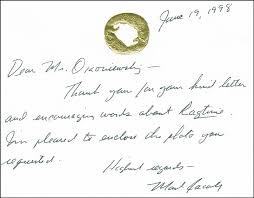 June 19, 1998
Dear Mr. Okoniewski —
Thank you for your kind letter
and encouraging words about Ragtime.
I'm pleased to enclose the photo you
requested.
Highest regards —